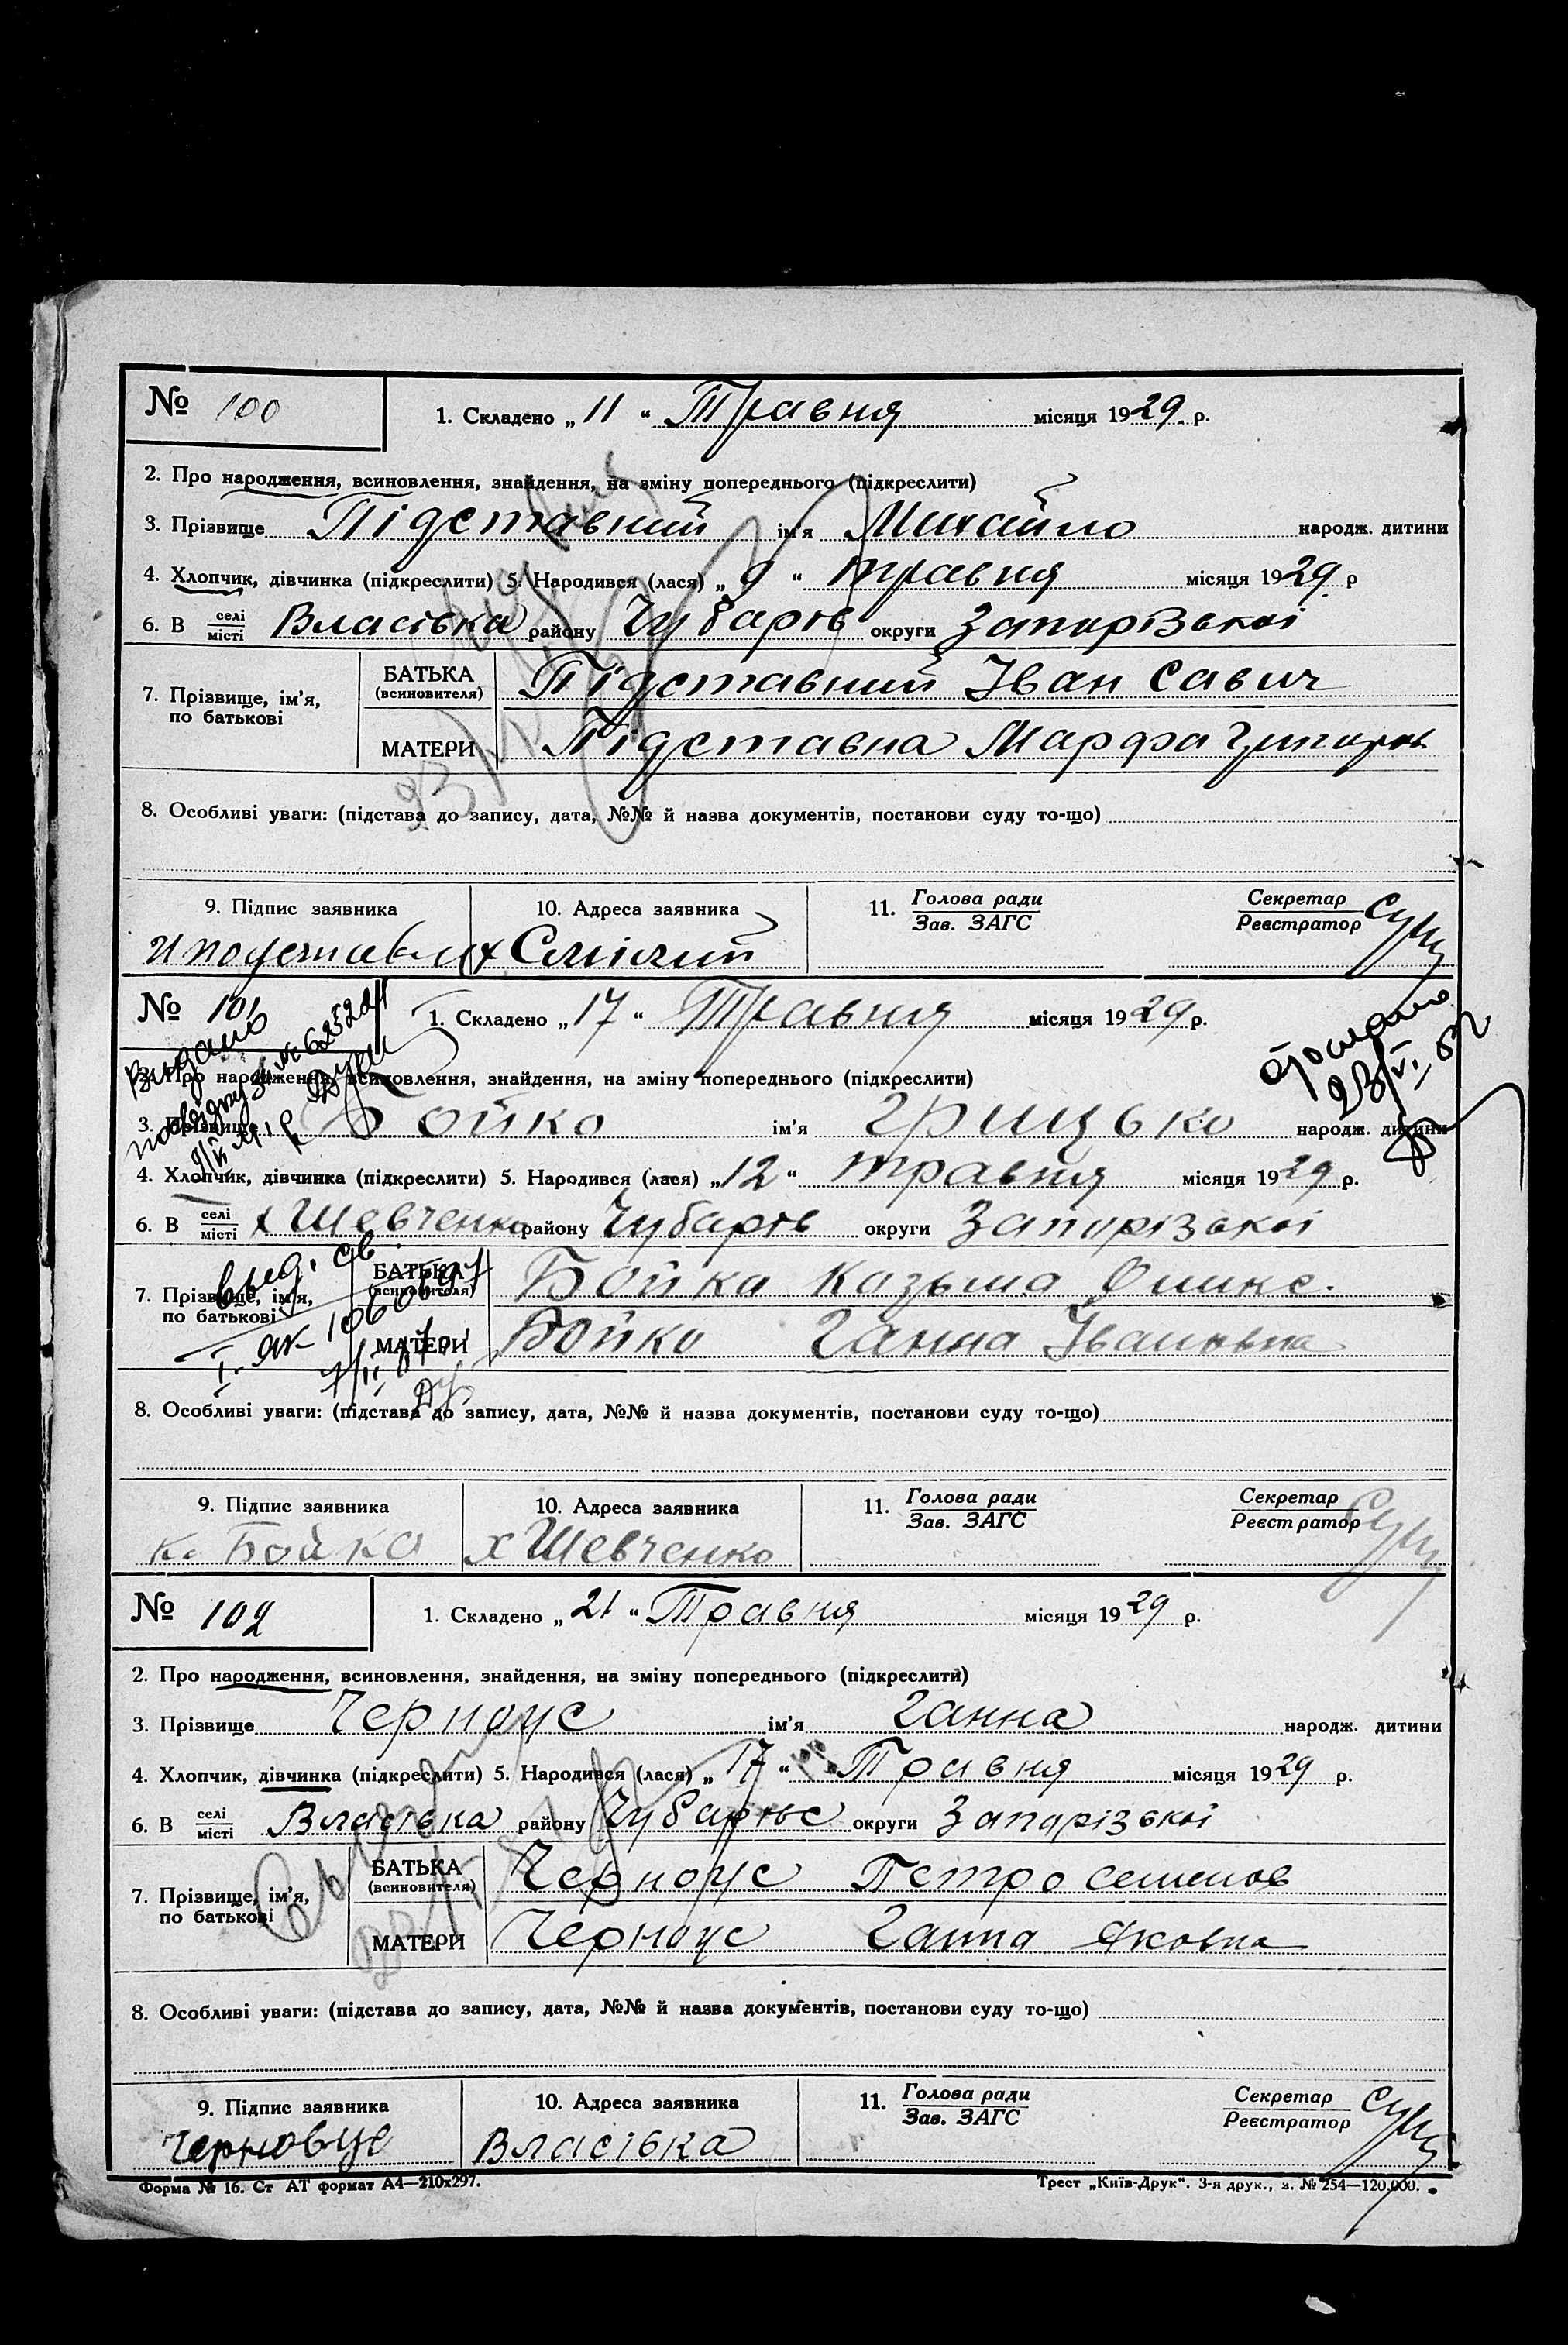 № 100 1. Складено „ 11 “ Травня місяця 1929. р.
2. Про народження, всиновлення, знайдення, на зміну попереднього (підкреслити)
3. Прізвище Підставний ім'я Михайло народж. дитини
4. Хлопчик, дівчинка (підкреслити) 5. Народився (лася) „ 9 “ травня місяця 1929. р
6. В селі місті Власівка району Чубарів округи Запорізької
7. Прізвище, ім'я, по батькові
БАТЬКА (всиновителя) Підставний Іван Савич
МАТЕРИ Підставна Марфа
8. Особливі уваги: (підстава до запису, дата, №№ й назва документів, постанови суду то-що)
9. Підпис заявника 10. Адреса заявника 11. Голова ради Зав. ЗАГС Секретар Реєстратор
х Смілий
№ 101 1. Складено „ 17 “ Травня місяця 1929 р.
Видано
2. Про народження, всиновлення, знайдення, на зміну попереднього (підкреслити)
3. Прізвище Бойко ім'я Грицько народж. дитини
4. Хлопчик, дівчинка (підкреслити) 5. Народився (лася) „ 12 “ травня місяця 1929 р.
6. В селі місті х Шевченко району Чубарів округи Запорізької
7. Прізвище, ім'я, по батькові
БАТЬКА (всиновителя) Бойка Казьма
МАТЕРИ Бойко Ганна Івановна
8. Особливі уваги: (підстава до запису, дата, №№ й назва документів, постанови суду то-що)
9. Підпис заявника 10. Адреса заявника 11. Голова ради Зав. ЗАГС Секретар Реєстратор
К. Бойка х Шевченко
№ 102 1. Складено „ 21 “ Травня місяця 1929 р.
2. Про народження, всиновлення, знайдення, на зміну попереднього (підкреслити)
3. Прізвище Черноус ім'я Ганна народж. дитини
4. Хлопчик, дівчинка (підкреслити) 5. Народився (лася) „ 17 “ Травня місяця 1929 р.
6. В селі місті Власівка району округи Запорізької
7. Прізвище, ім'я, по батькові
БАТЬКА (всиновителя) Черноус Петро Семенов
МАТЕРИ Черноус Ганна Яковна
8. Особливі уваги: (підстава до запису, дата, №№ й назва документів, постанови суду то-що)
9. Підпис заявника 10. Адреса заявника 11. Голова ради Зав. ЗАГС Секретар Реєстратор
Черновус Власівка
Форма № 16. Ст АТ формат А4—210х297. Трест „Київ-Друк“. 3-я друк., з. № 254—120.000.